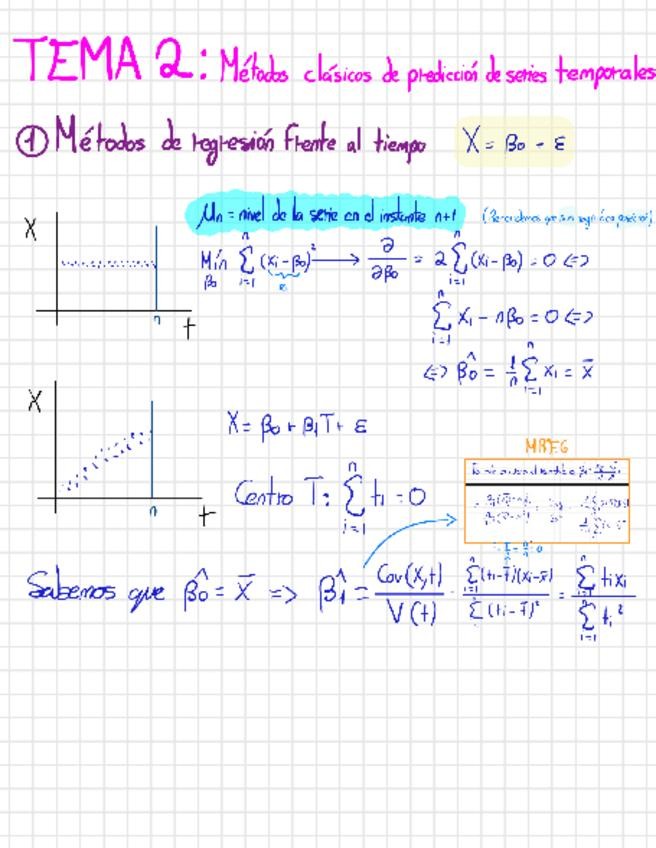 TEMA 2: Métodos clásicos de predicción de series temporales
① Métodos de regresión frente al tiempo X = β₀ + ε
μₙ = nivel de la serie en el instante n+1
X
n
t
Mín_β₀ Σ_{i=1}^{n} (xᵢ - β₀)² → ∂/∂β₀ = 2 Σ_{i=1}^{n} (xᵢ - β₀) = 0 <=>
Σ_{i=1}^{n} xᵢ - nβ₀ = 0 <=>
<=> β̂₀ = 1/n Σ_{i=1}^{n} xᵢ = x̄
X
n
t
X = β₀ + β₁T + ε
Centro T: Σ_{i=1}^{n} tᵢ = 0
Sabemos que β̂₀ = x̄ => β̂₁ = Cov(X,t)/V(t) = Σ_{i=1}^{n} (tᵢ - t̄)(xᵢ - x̄) / Σ (tᵢ - t̄)² = Σ_{i=1}^{n} tᵢxᵢ / Σ_{i=1}^{n} tᵢ²